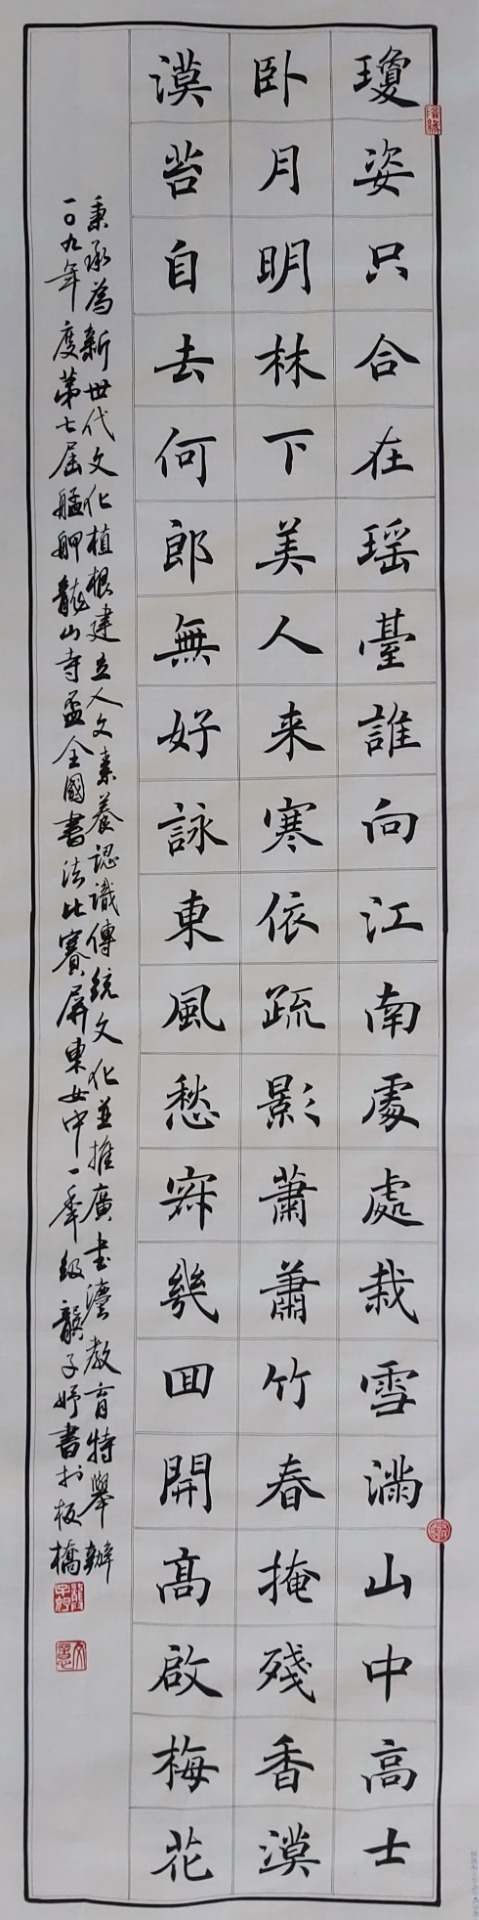 瓊姿只合在瑶臺誰向江南處處栽雪滿山中高士
卧月明林下美人来寒依疏影蕭蕭竹春掩殘香漠
漠苔自去何郎無好詠東風愁寂幾回開高啟梅花
秉承為新世代文化植根建立人文素養認識傳統文化並推廣書灋教育特舉辦
一〇九年度第七屆艋舺龍山寺盃全國書法比賽屏東女中一年級龔子妤書於板橋